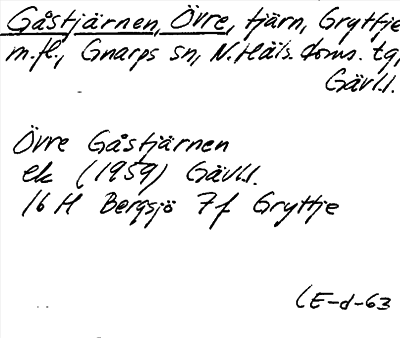 Gåstjärnen, Övre, tjärn, Gryttje
m.fl., Gnarps sn, N. Häls. doms. tg,
Gävl.l.
Övre Gåstjärnen
ek (1959) Gävl.l.
16 H Bergsjö 7f Gryttje
LE-d-63